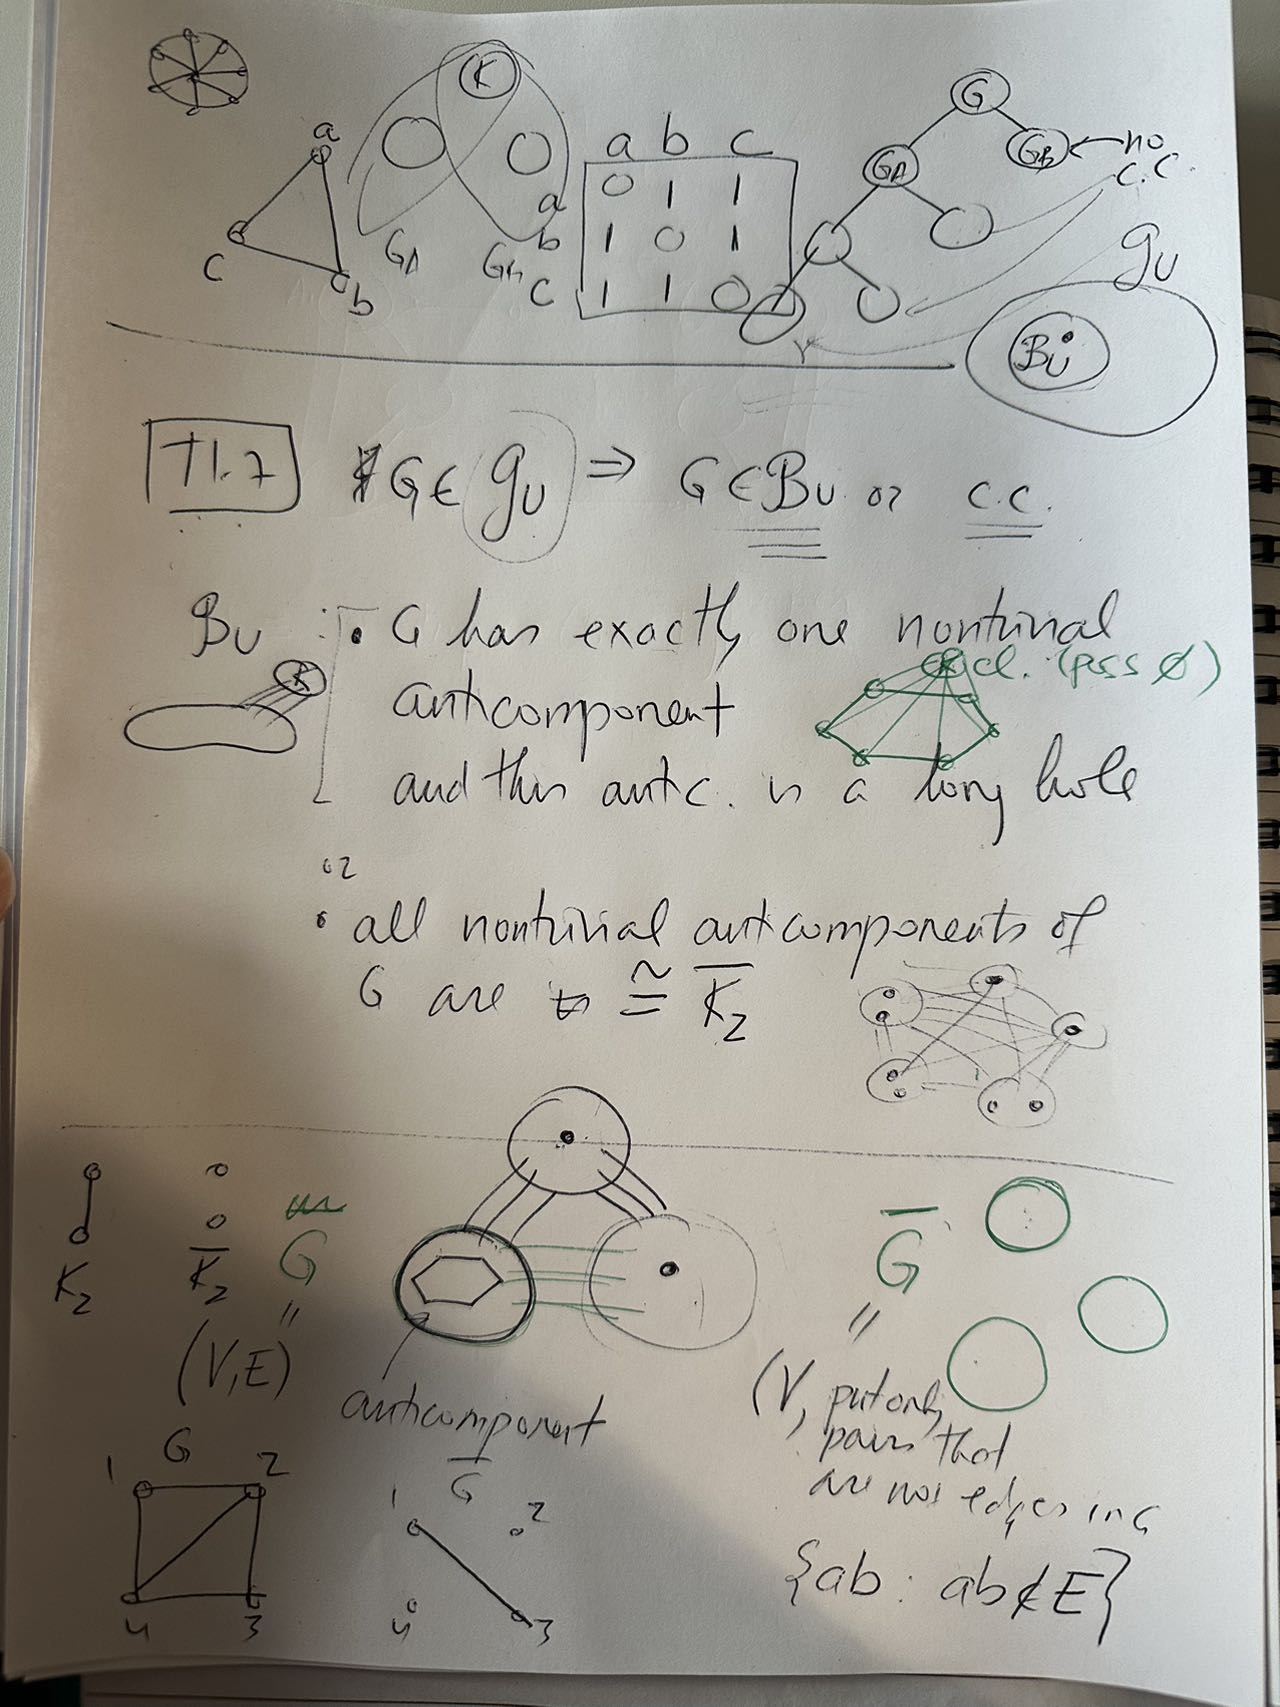 K
a
c
b
G_A
G_B
a b c
a 0 1 1
b 1 0 1
c 1 1 0
G
G_A
G_B ← no c.c.
𝒢_U
B_U
T1.7 G ∈ 𝒢_U ⇒ G ∈ B_U or c.c.
B_U : • G has exactly one nontrivial
K
cl. (poss ∅)
anticomponent
and this antic. is a long hole
or
• all nontrivial anticomponents of
G are ≅ K̅₂
K₂
K̅₂
G
"
(V,E)
anticomponent
G̅
"
(V, put only
pairs that
are not edges in G
{ab : ab ∉ E}
G
1 2
4 3
G̅
1 2
4 3